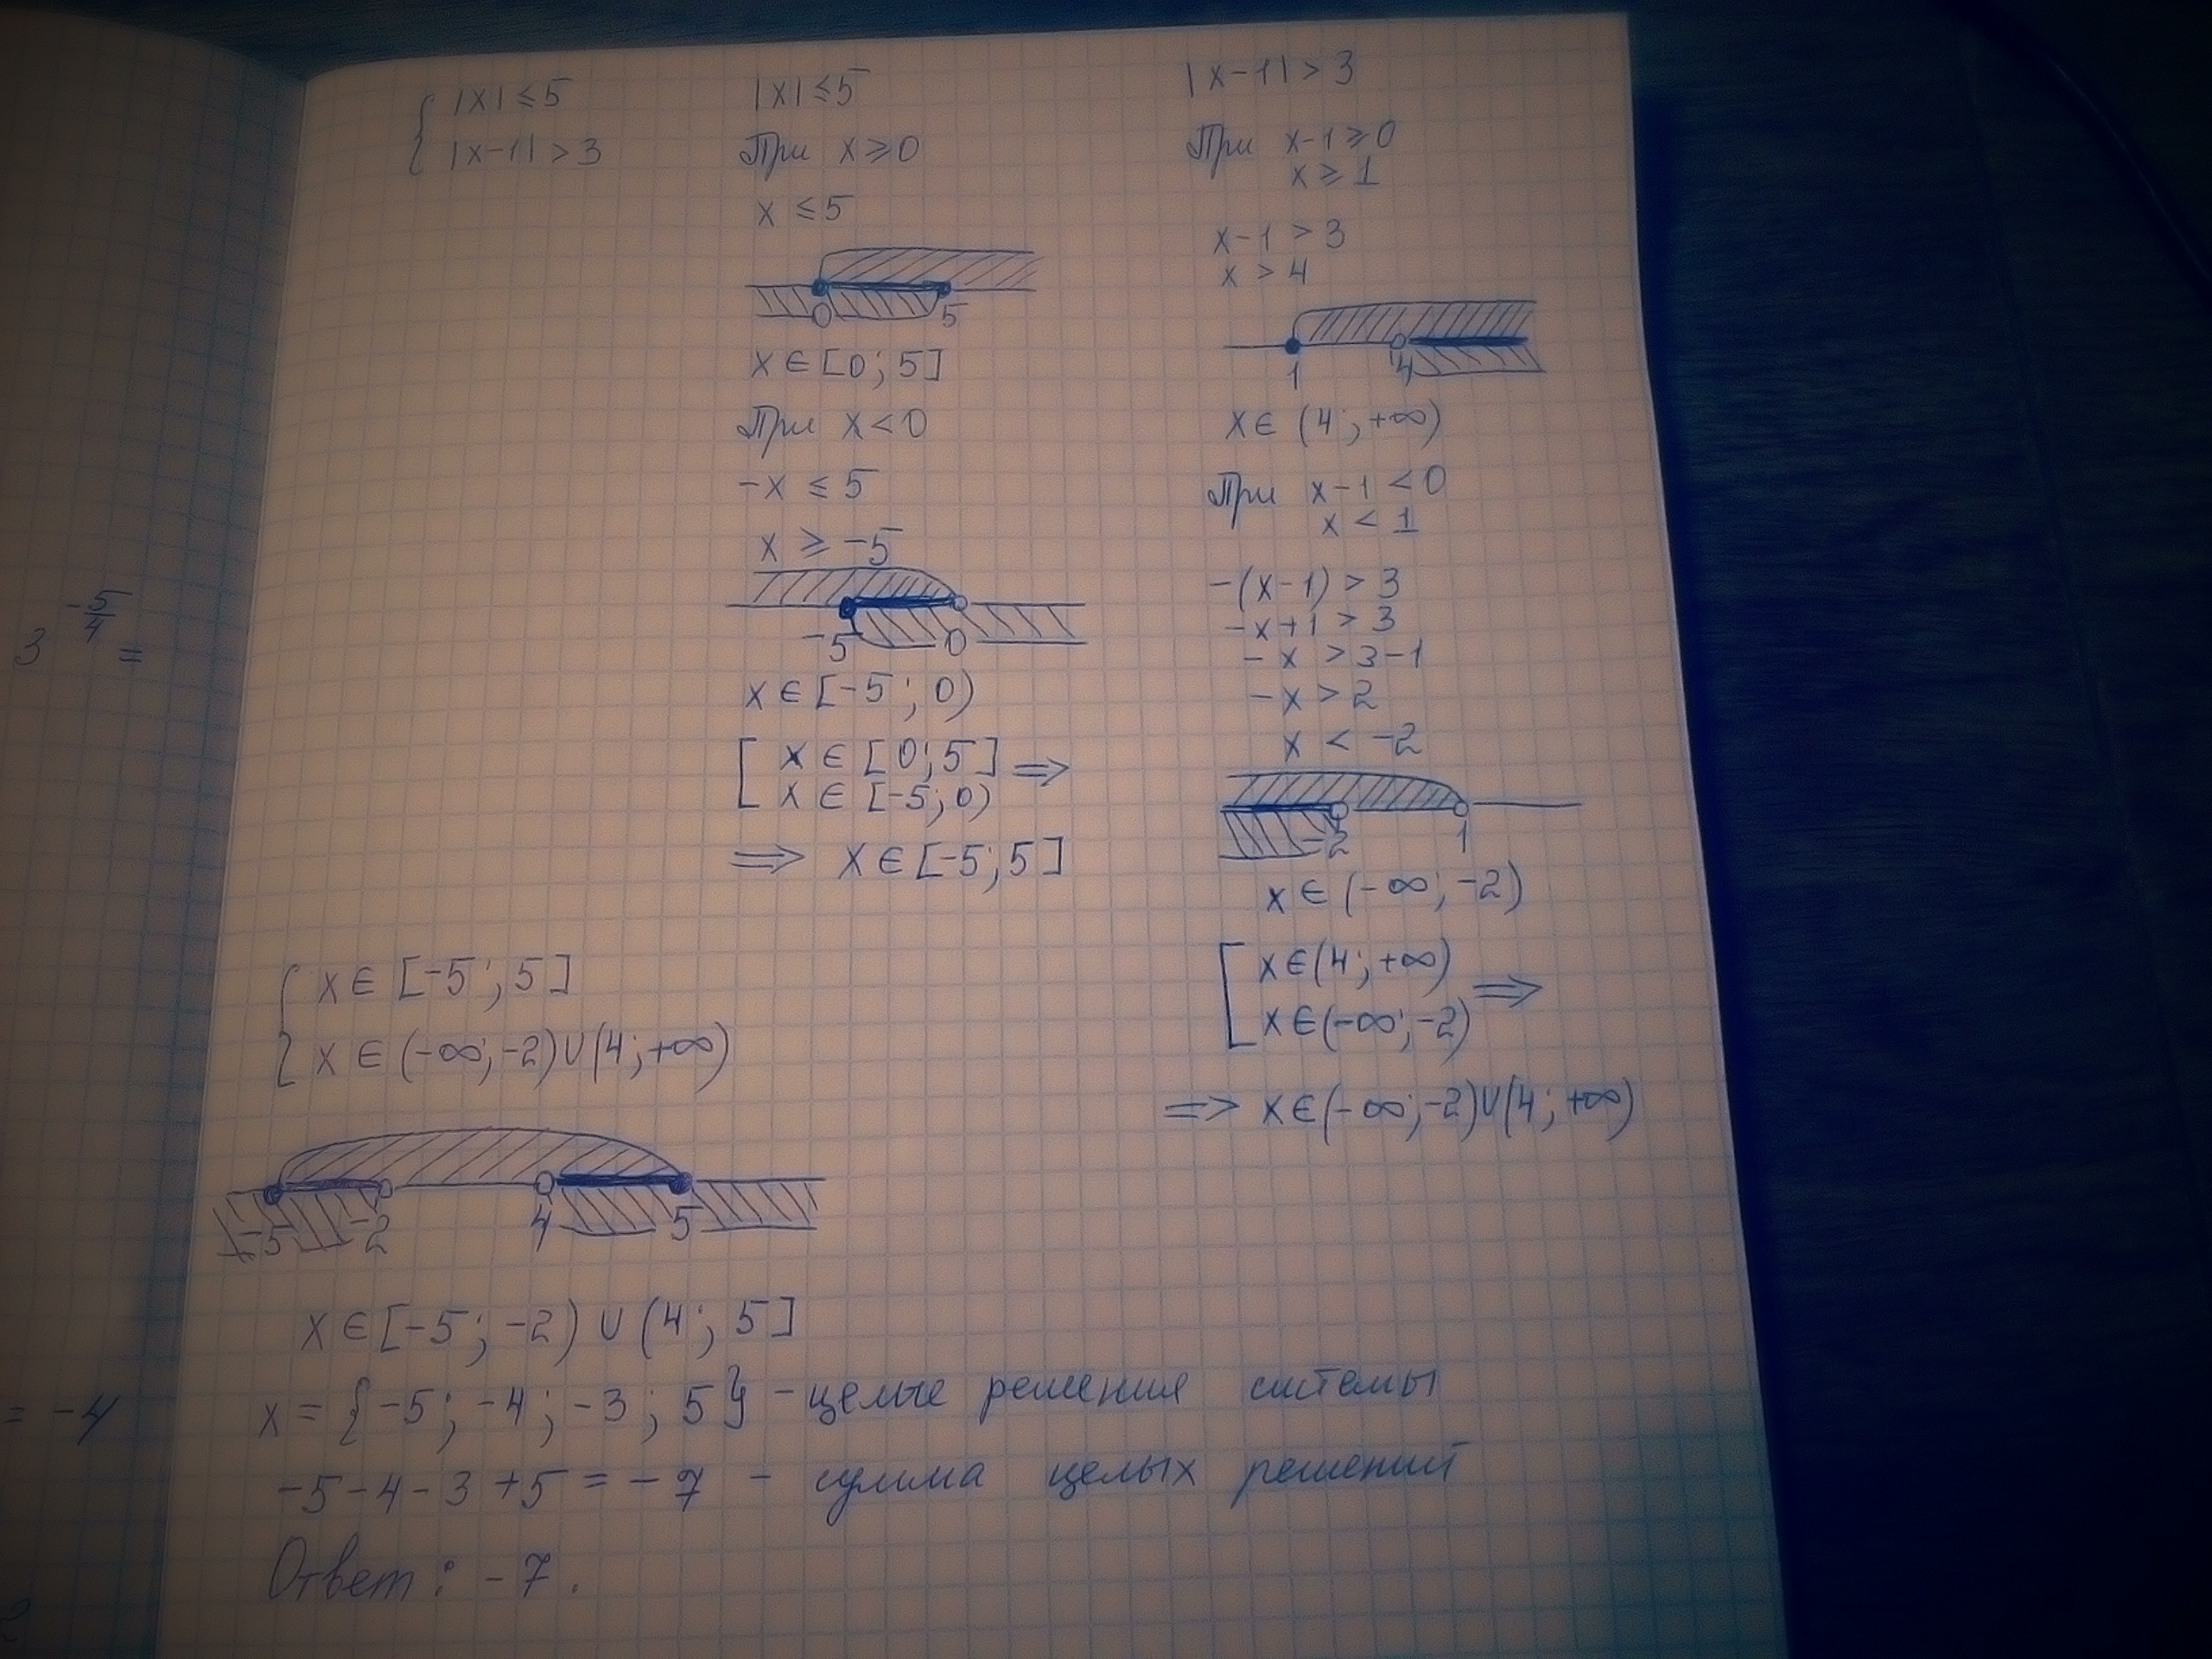 { |x| ≤ 5
|x-1| > 3
|x| ≤ 5
При x ≥ 0
x ≤ 5
0 5
x ∈ [0; 5]
При x < 0
-x ≤ 5
x ≥ -5
-5 0
x ∈ [-5; 0)
[ x ∈ [0; 5] ⇒
x ∈ [-5; 0)
⇒ x ∈ [-5; 5]
|x-1| > 3
При x-1 ≥ 0
x ≥ 1
x-1 > 3
x > 4
1 4
x ∈ (4; +∞)
При x-1 < 0
x < 1
-(x-1) > 3
-x+1 > 3
-x > 3-1
-x > 2
x < -2
-2 1
x ∈ (-∞; -2)
[ x ∈ (4; +∞)
x ∈ (-∞; -2) ⇒
⇒ x ∈ (-∞; -2) ∪ (4; +∞)
{ x ∈ [-5; 5]
x ∈ (-∞; -2) ∪ (4; +∞)
-5 -2 4 5
x ∈ [-5; -2) ∪ (4; 5]
x = {-5; -4; -3; 5} - целые решения системы
-5-4-3+5 = -7 - сумма целых решений
Ответ: -7.
3^(-5/4) =
= -4
2